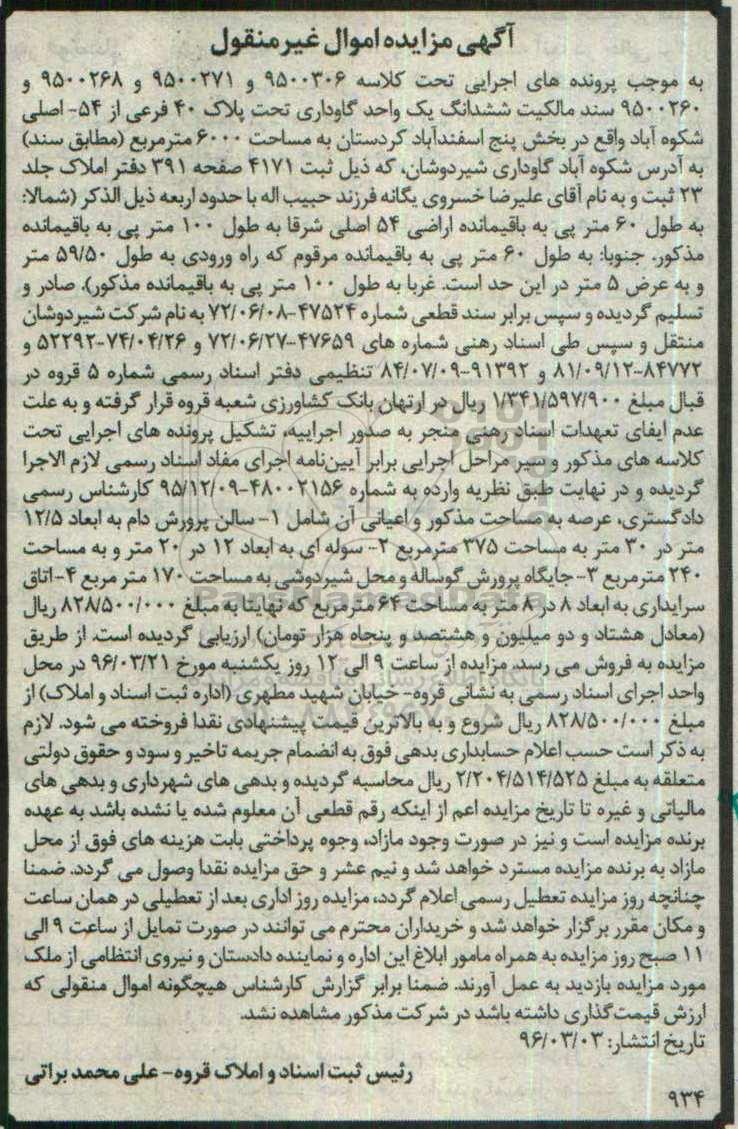 آگهی مزایده اموال غیرمنقول
به موجب پرونده های اجرایی تحت کلاسه ۹۵۰۰۳۰۶ و ۹۵۰۰۲۷۱ و ۹۵۰۰۲۶۸ و
۹۵۰۰۲۶۰ سند مالکیت ششدانگ یک واحد گاوداری تحت پلاک ۴۰ فرعی از ۵۴- اصلی
شکوه آباد واقع در بخش پنج اسفندآباد کردستان به مساحت ۶۰۰۰ مترمربع (مطابق سند)
به آدرس شکوه آباد گاوداری شیردوشان، که ذیل ثبت ۴۱۷۱ صفحه ۳۹۱ دفتر املاک جلد
۲۳ ثبت و به نام آقای علیرضا خسروی یگانه فرزند حبیب اله با حدود اربعه ذیل الذکر (شمالا:
به طول ۶۰ متر پی به باقیمانده اراضی ۵۴ اصلی شرقا به طول ۱۰۰ متر پی به باقیمانده
مذکور. جنوبا: به طول ۶۰ متر پی به باقیمانده مرقوم که راه ورودی به طول ۵۹/۵۰ متر
و به عرض ۵ متر در این حد است. غربا به طول ۱۰۰ متر پی به باقیمانده مذکور)، صادر و
تسلیم گردیده و سپس برابر سند قطعی شماره ۴۷۵۲۴-۷۲/۰۶/۰۸ به نام شرکت شیردوشان
منتقل و سپس طی اسناد رهنی شماره های ۴۷۶۵۹-۷۲/۰۶/۲۷ و ۷۴/۰۴/۲۶-۵۲۲۹۲ و
۸۴۷۷۲-۸۱/۰۹/۱۲ و ۹۱۳۹۲-۸۴/۰۷/۰۹ تنظیمی دفتر اسناد رسمی شماره ۵ قروه در
قبال مبلغ ۱/۳۴۱/۵۹۷/۹۰۰ ریال در ارتهان بانک کشاورزی شعبه قروه قرار گرفته و به علت
عدم ایفای تعهدات اسناد رهنی منجر به صدور اجراییه، تشکیل پرونده های اجرایی تحت
کلاسه های مذکور و سیر مراحل اجرایی برابر آیین‌نامه اجرای مفاد اسناد رسمی لازم الاجرا
گردیده و در نهایت طبق نظریه وارده به شماره ۴۸۰۰۲۱۵۶-۹۵/۱۲/۰۹ کارشناس رسمی
دادگستری، عرصه به مساحت مذکور و اعیانی آن شامل ۱- سالن پرورش دام به ابعاد ۱۲/۵
متر در ۳۰ متر به مساحت ۳۷۵ مترمربع ۲- سوله ای به ابعاد ۱۲ در ۲۰ متر و به مساحت
۲۴۰ مترمربع ۳- جایگاه پرورش گوساله و محل شیردوشی به مساحت ۱۷۰ متر مربع ۴-اتاق
سرایداری به ابعاد ۸ در ۸ متر به مساحت ۶۴ مترمربع که نهایتا به مبلغ ۸۲۸/۵۰۰/۰۰۰ ریال
(معادل هشتاد و دو میلیون و هشتصد و پنجاه هزار تومان) ارزیابی گردیده است. از طریق
مزایده به فروش می رسد. مزایده از ساعت ۹ الی ۱۲ روز یکشنبه مورخ ۹۶/۰۳/۲۱ در محل
واحد اجرای اسناد رسمی به نشانی قروه- خیابان شهید مطهری (اداره ثبت اسناد و املاک) از
مبلغ ۸۲۸/۵۰۰/۰۰۰ ریال شروع و به بالاترین قیمت پیشنهادی نقدا فروخته می شود. لازم
به ذکر است حسب اعلام حسابداری بدهی فوق به انضمام جریمه تاخیر و سود و حقوق دولتی
متعلقه به مبلغ ۲/۲۰۴/۵۱۴/۵۲۵ ریال محاسبه گردیده و بدهی های شهرداری و بدهی های
مالیاتی و غیره تا تاریخ مزایده اعم از اینکه رقم قطعی آن معلوم شده یا نشده باشد به عهده
برنده مزایده است و نیز در صورت وجود مازاد، وجوه پرداختی بابت هزینه های فوق از محل
مازاد به برنده مزایده مسترد خواهد شد و نیم عشر و حق مزایده نقدا وصول می گردد. ضمنا
چنانچه روز مزایده تعطیل رسمی اعلام گردد، مزایده روز اداری بعد از تعطیلی در همان ساعت
و مکان مقرر برگزار خواهد شد و خریداران محترم می توانند در صورت تمایل از ساعت ۹ الی
۱۱ صبح روز مزایده به همراه مامور ابلاغ این اداره و نماینده دادستان و نیروی انتظامی از ملک
مورد مزایده بازدید به عمل آورند. ضمنا برابر گزارش کارشناس هیچگونه اموال منقولی که
ارزش قیمت‌گذاری داشته باشد در شرکت مذکور مشاهده نشد.
تاریخ انتشار: ۹۶/۰۳/۰۳
رئیس ثبت اسناد و املاک قروه- علی محمد براتی
۹۳۴